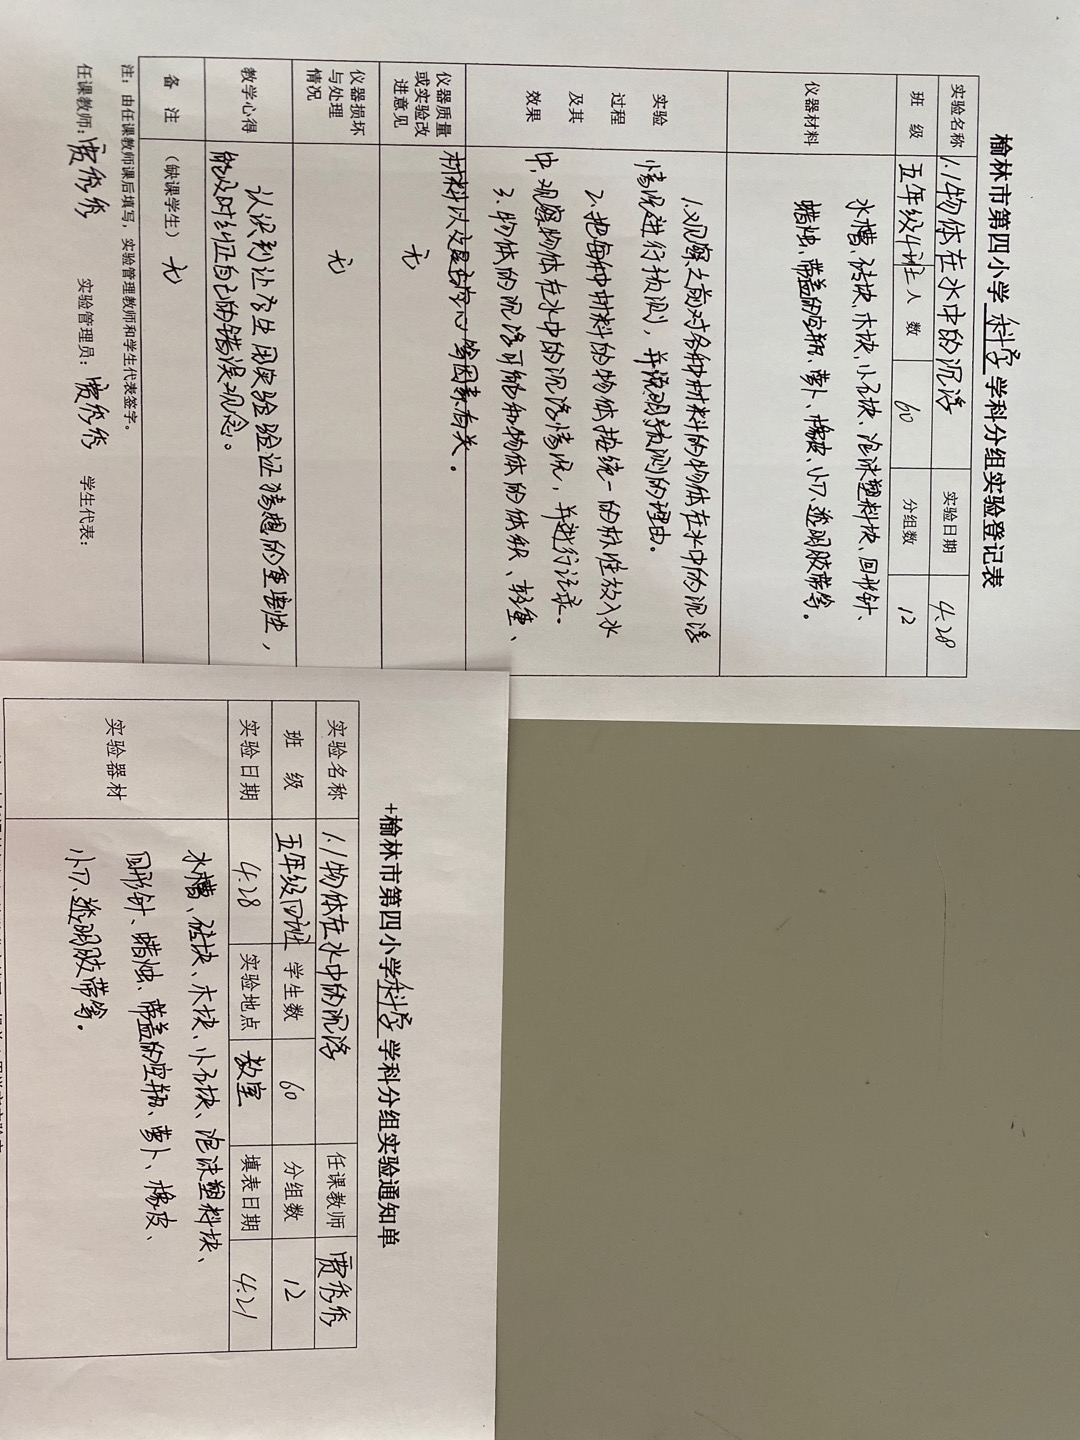 榆林市第四小学 科学 学科分组实验登记表
实验名称 1.1物体在水中的沉浮 实验日期 4.28
班 级 五年级4班 人 数 60 分组数 12
仪器材料 水槽、砖块、木块、小石块、泡沫塑料块、回形针、
蜡烛、带盖的空瓶、萝卜、橡皮、小刀、透明胶带等。
实验
过程
及其
效果
1.观察之前对各种材料的物体在水中的沉浮
情况进行预测，并说明预测的理由。
2.把每种材料的物体按统一的标准放入水
中，观察物体在水中的沉浮情况，并进行记录。
3.物体的沉浮可能和物体的体积、轻重、
材料以及是否空心等因素有关。
仪器质量
或实验改
进意见
无
仪器损坏
与处理
情况
无
教学心得 认识到让学生用实验验证猜想的重要性，
能及时纠正自己的错误观念。
备 注 （缺课学生） 无
注：由任课教师课后填写，实验管理教师和学生代表签字。
任课教师：贾秀秀 实验管理员：贾秀秀 学生代表：
+榆林市第四小学科学学科分组实验通知单
实验名称 1.1物体在水中的沉浮 任课教师 贾秀秀
班 级 五年级四班 学生数 60 分组数 12
实验日期 4.28 实验地点 教室 填表日期 4.21
实验器材 水槽、砖块、木块、小石块、泡沫塑料块、
回形针、蜡烛、带盖的空瓶、萝卜、橡皮、
小刀、透明胶带等。